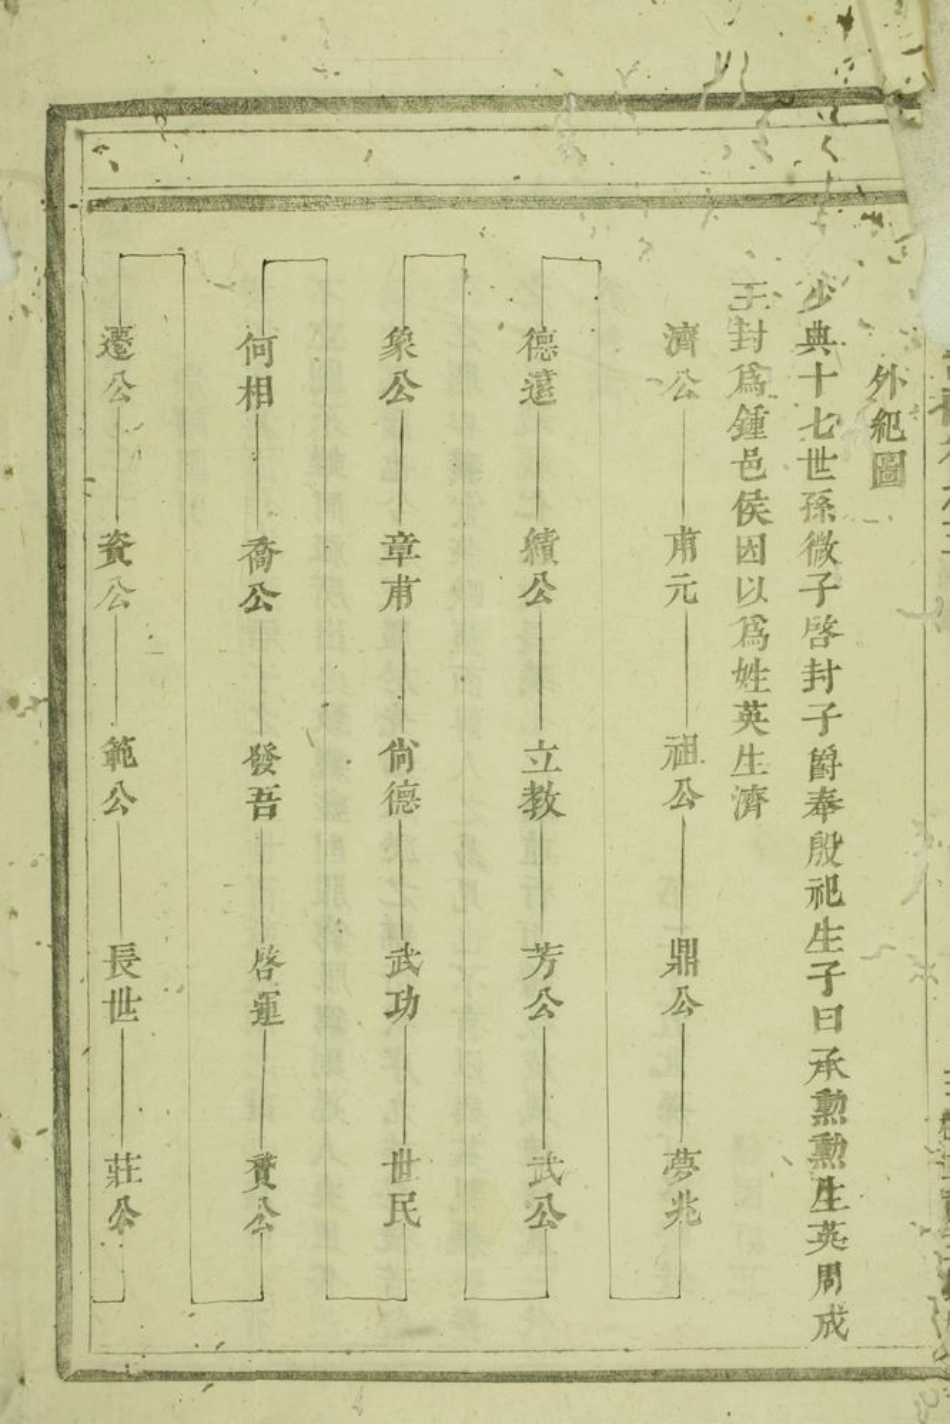 外紀圖
少典十七世孫微子啓封子爵奉殷祀生子曰承勳勳生英周成
王封爲鍾邑侯因以爲姓英生濟
濟公 甫元 祖公 鼎公 夢兆
德遠 續公 立教 芳公 武公
象公 章甫 尙德 武功 世民
何相 喬公 發吾 啓運 賛公
遷公 資公 範公 長世 莊公